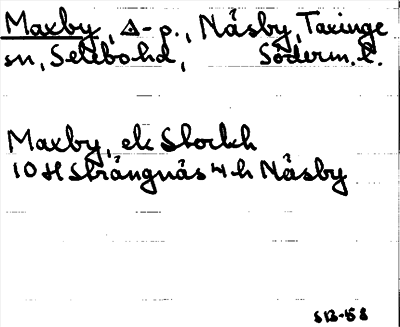 Maxby, Δ-p., Näsby, Taxinge
sn, Selebo hd, Söderm. l.
Maxby, ek Storkh
10 H Strängnäs 4 h Näsby
S13-58